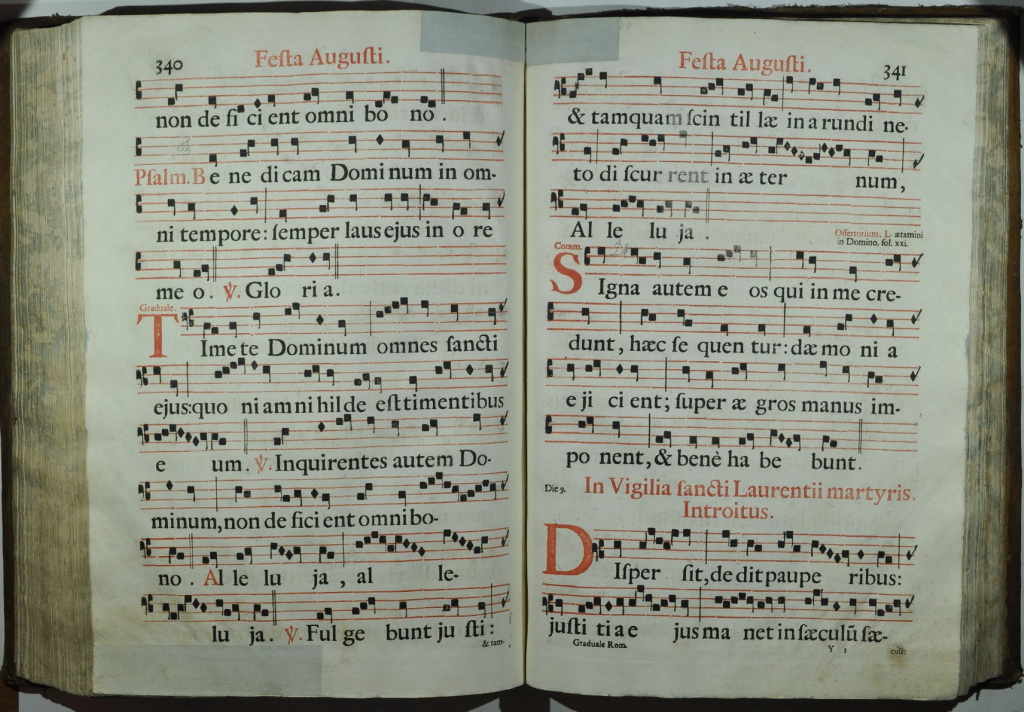 340
Feſta Auguſti.
non de fi ci ent omni bo no.
Pſalm. B e ne di cam Domi num in om-
ni tempore: ſemper laus ejus in o re
me o. ℣. Glo ri a.
Graduale.
T Ime te Dominum omnes ſancti
ejus:quo ni am ni hil de eſt timentibus
e um. ℣. Inquirentes autem Do-
minum, non de fici ent omni bo-
no. Al le lu ja, al le-
lu ja. ℣. Ful ge bunt ju ſti:
& tam-
Feſta Auguſti.
341
& tamquam ſcin til læ in a rundi ne-
to di ſcur rent in æ ter num,
Al le lu ja.
Offertorium. L ætamini
in Domino. fol. xxi.
Comm.
S Igna autem e os qui in me cre-
dunt, hæc ſe quen tur: dæ mo ni a
e ji ci ent; ſuper æ gros manus im-
po nent, & benè ha be bunt.
Die 9.
In Vigilia ſancti Laurentii martyris.
Introitus.
D Iſper ſit, de dit paupe ribus:
juſti ti a e jus ma net in ſæculū ſæ-
Graduale Rom.
Y 3
culi: